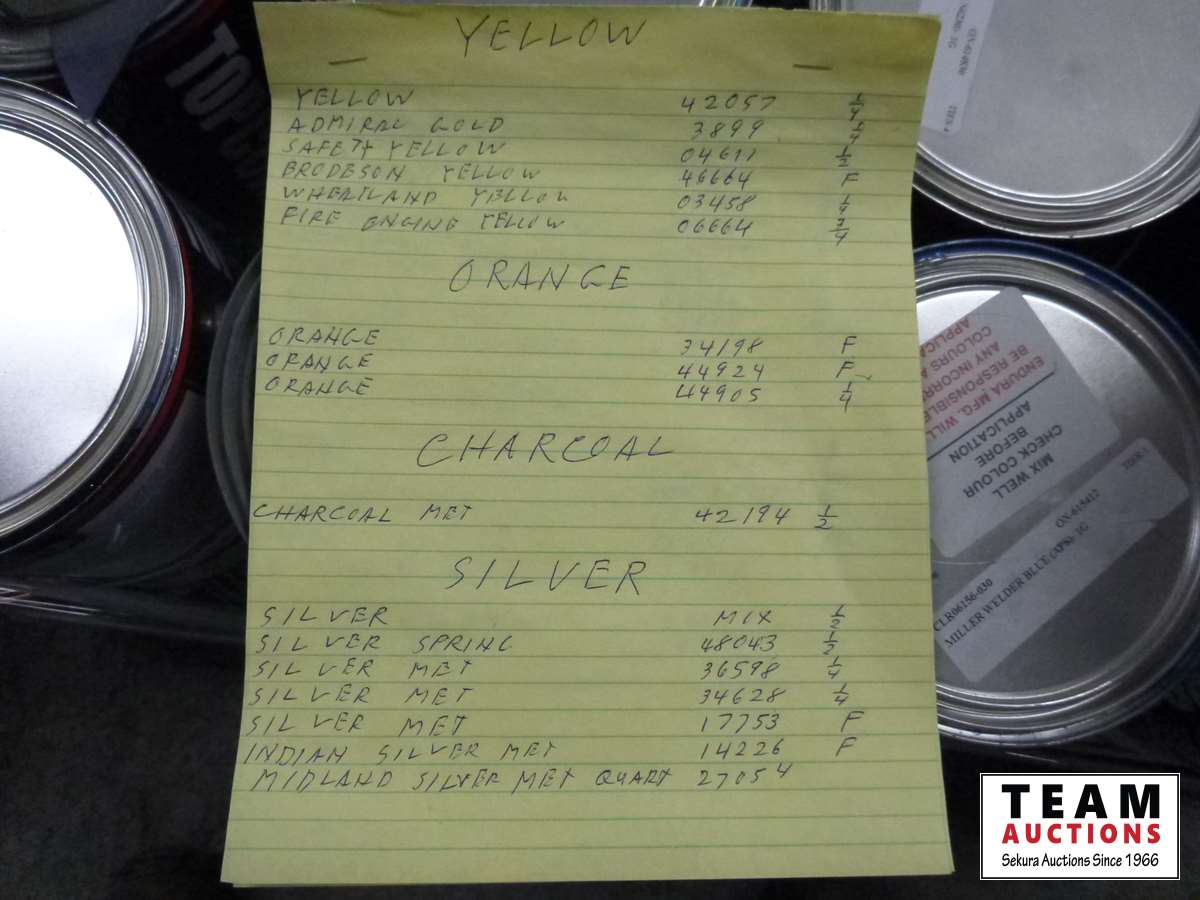 YELLOW
YELLOW 42057 1/4
ADMIRAL GOLD 3899 1/4
SAFETY YELLOW 04611 1/2
BRODESON YELLOW 46664 F
WHEATLAND YELLOW 03458 1/4
FIRE ENGINE YELLOW 06664 3/4
ORANGE
ORANGE 34198 F
ORANGE 44924 F
ORANGE 44905 1/4
CHARCOAL
CHARCOAL MET 42194 1/2
SILVER
SILVER MIX 1/2
SILVER SPRING 48043 1/2
SILVER MET 36598 1/4
SILVER MET 34628 1/4
SILVER MET 17753 F
INDIAN SILVER MET 14226 F
MIDLAND SILVER MET QUART 27054
ENDURA MFG. WILL
BE RESPONSIBLE
ANY INCORR
COLOURS A
APPLICA
MIX WELL
CHECK COLOUR
BEFORE
APPLICATION
CLR06156-030
MILLER WELDER BLUE (XPS)- 1G
TEAM
AUCTIONS
Sekura Auctions Since 1966